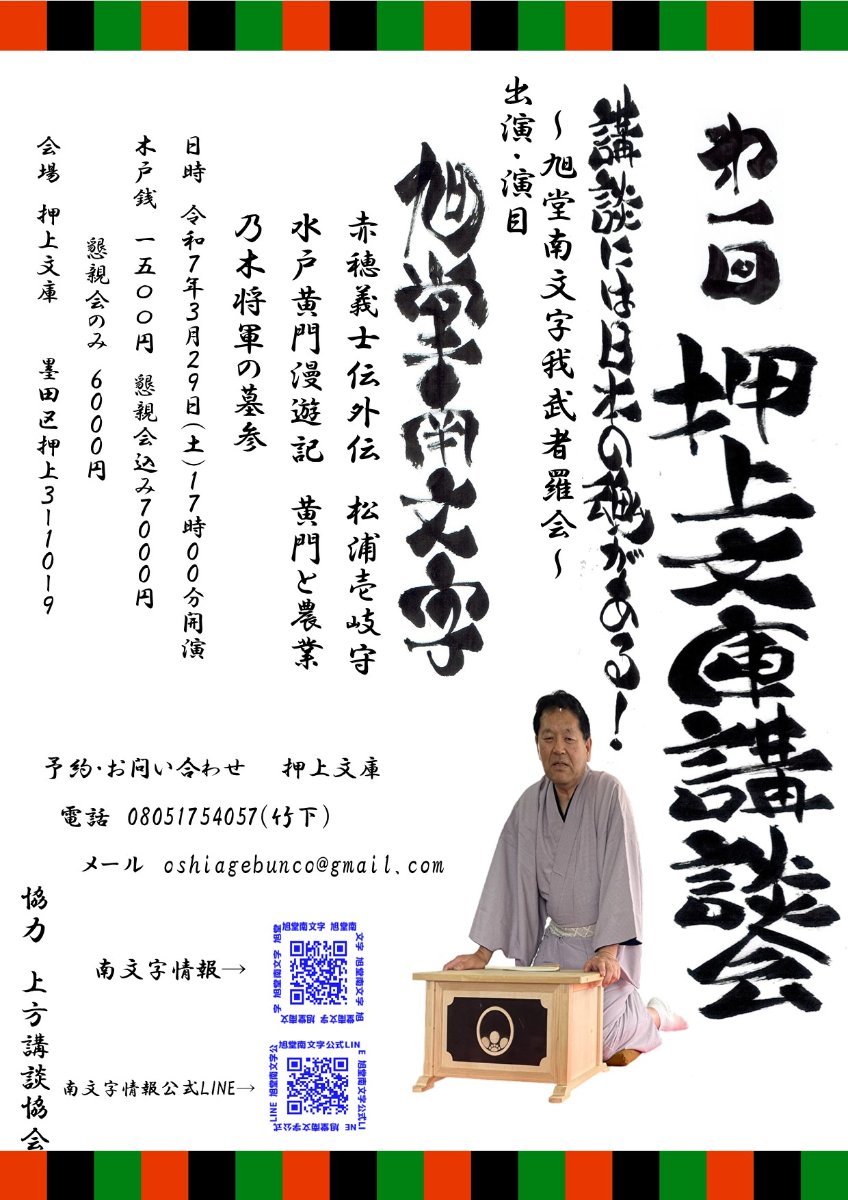 第一回 押上文庫講談会
講談には日本の魂がある!
~旭堂南文字我武者羅会~
出演・演目
旭堂南文字
赤穂義士伝外伝 松浦壱岐守
水戸黄門漫遊記 黄門と農業
乃木将軍の墓参
日時 令和7年3月29日(土)17時00分開演
木戸銭 一五〇〇円 懇親会込み7000円
懇親会のみ 6000円
会場 押上文庫 墨田区押上3ー10ー9
予約・お問い合わせ 押上文庫
電話 08051754057(竹下)
メール oshiagebunco@gmail.com
協力 上方講談協会
南文字情報→
旭堂南文字 旭堂南文字 旭堂南文字 旭堂南文字
南文字情報公式LINE→
旭堂南文字公式LINE 旭堂南文字公式LINE 旭堂南文字公式LINE